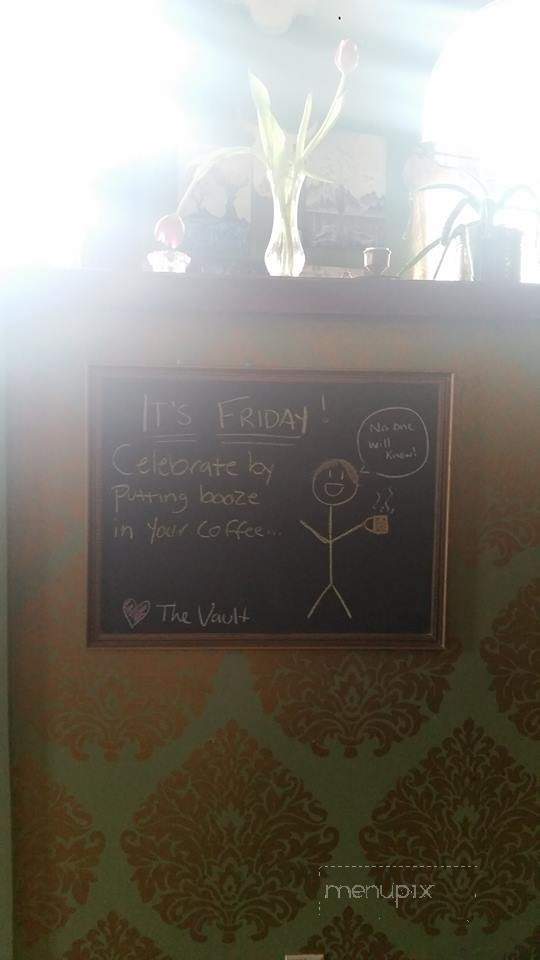 IT'S FRIDAY!
Celebrate by
putting booze
in your coffee...
No one
will
know!
The Vault
menupix